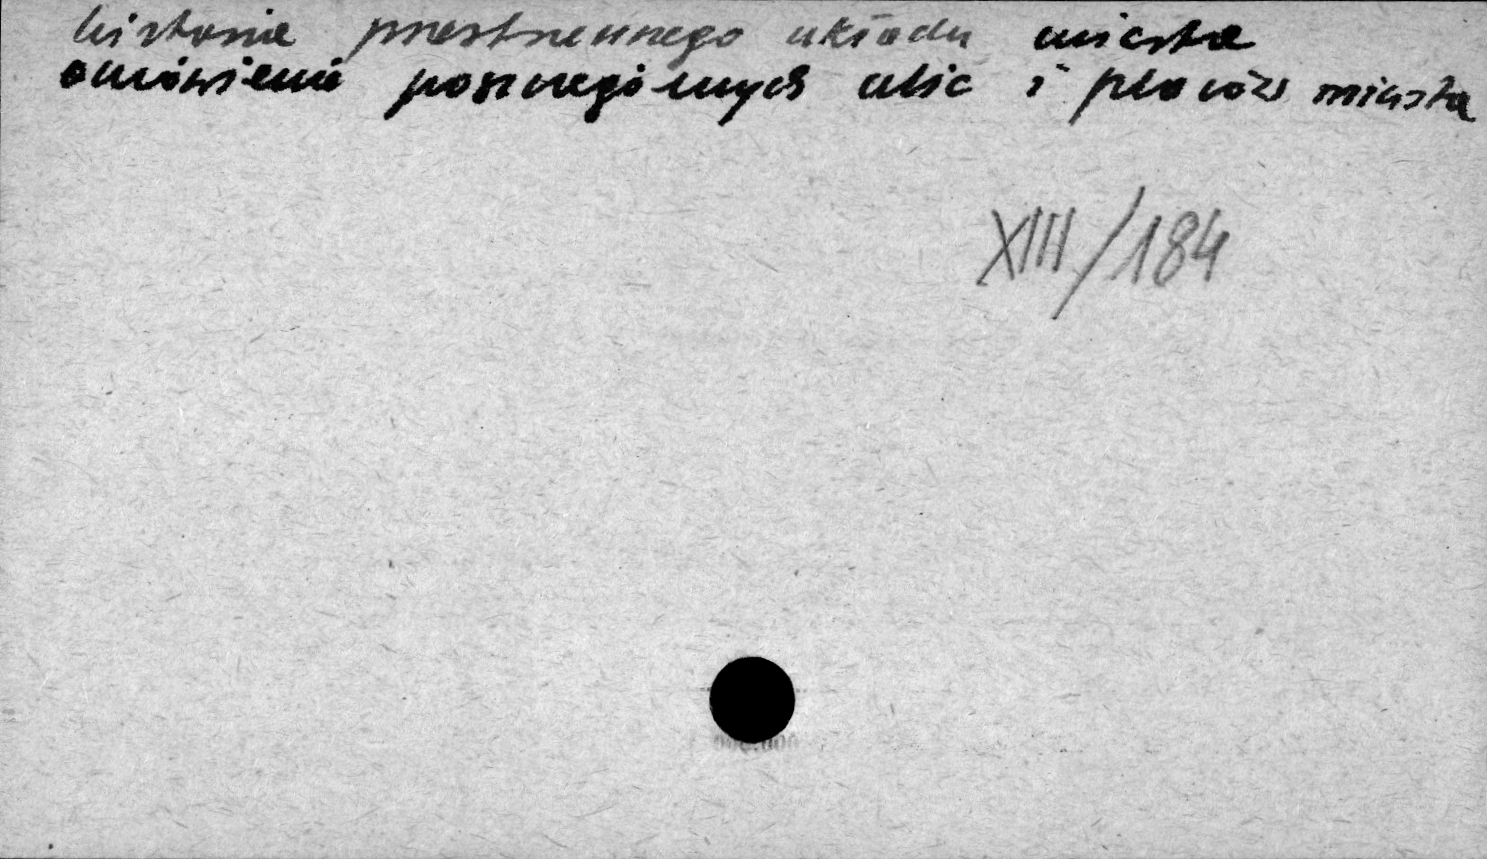 historia przestrzennego układu miasta
omówienie poszczególnych ulic i placów miasta
XIII/184